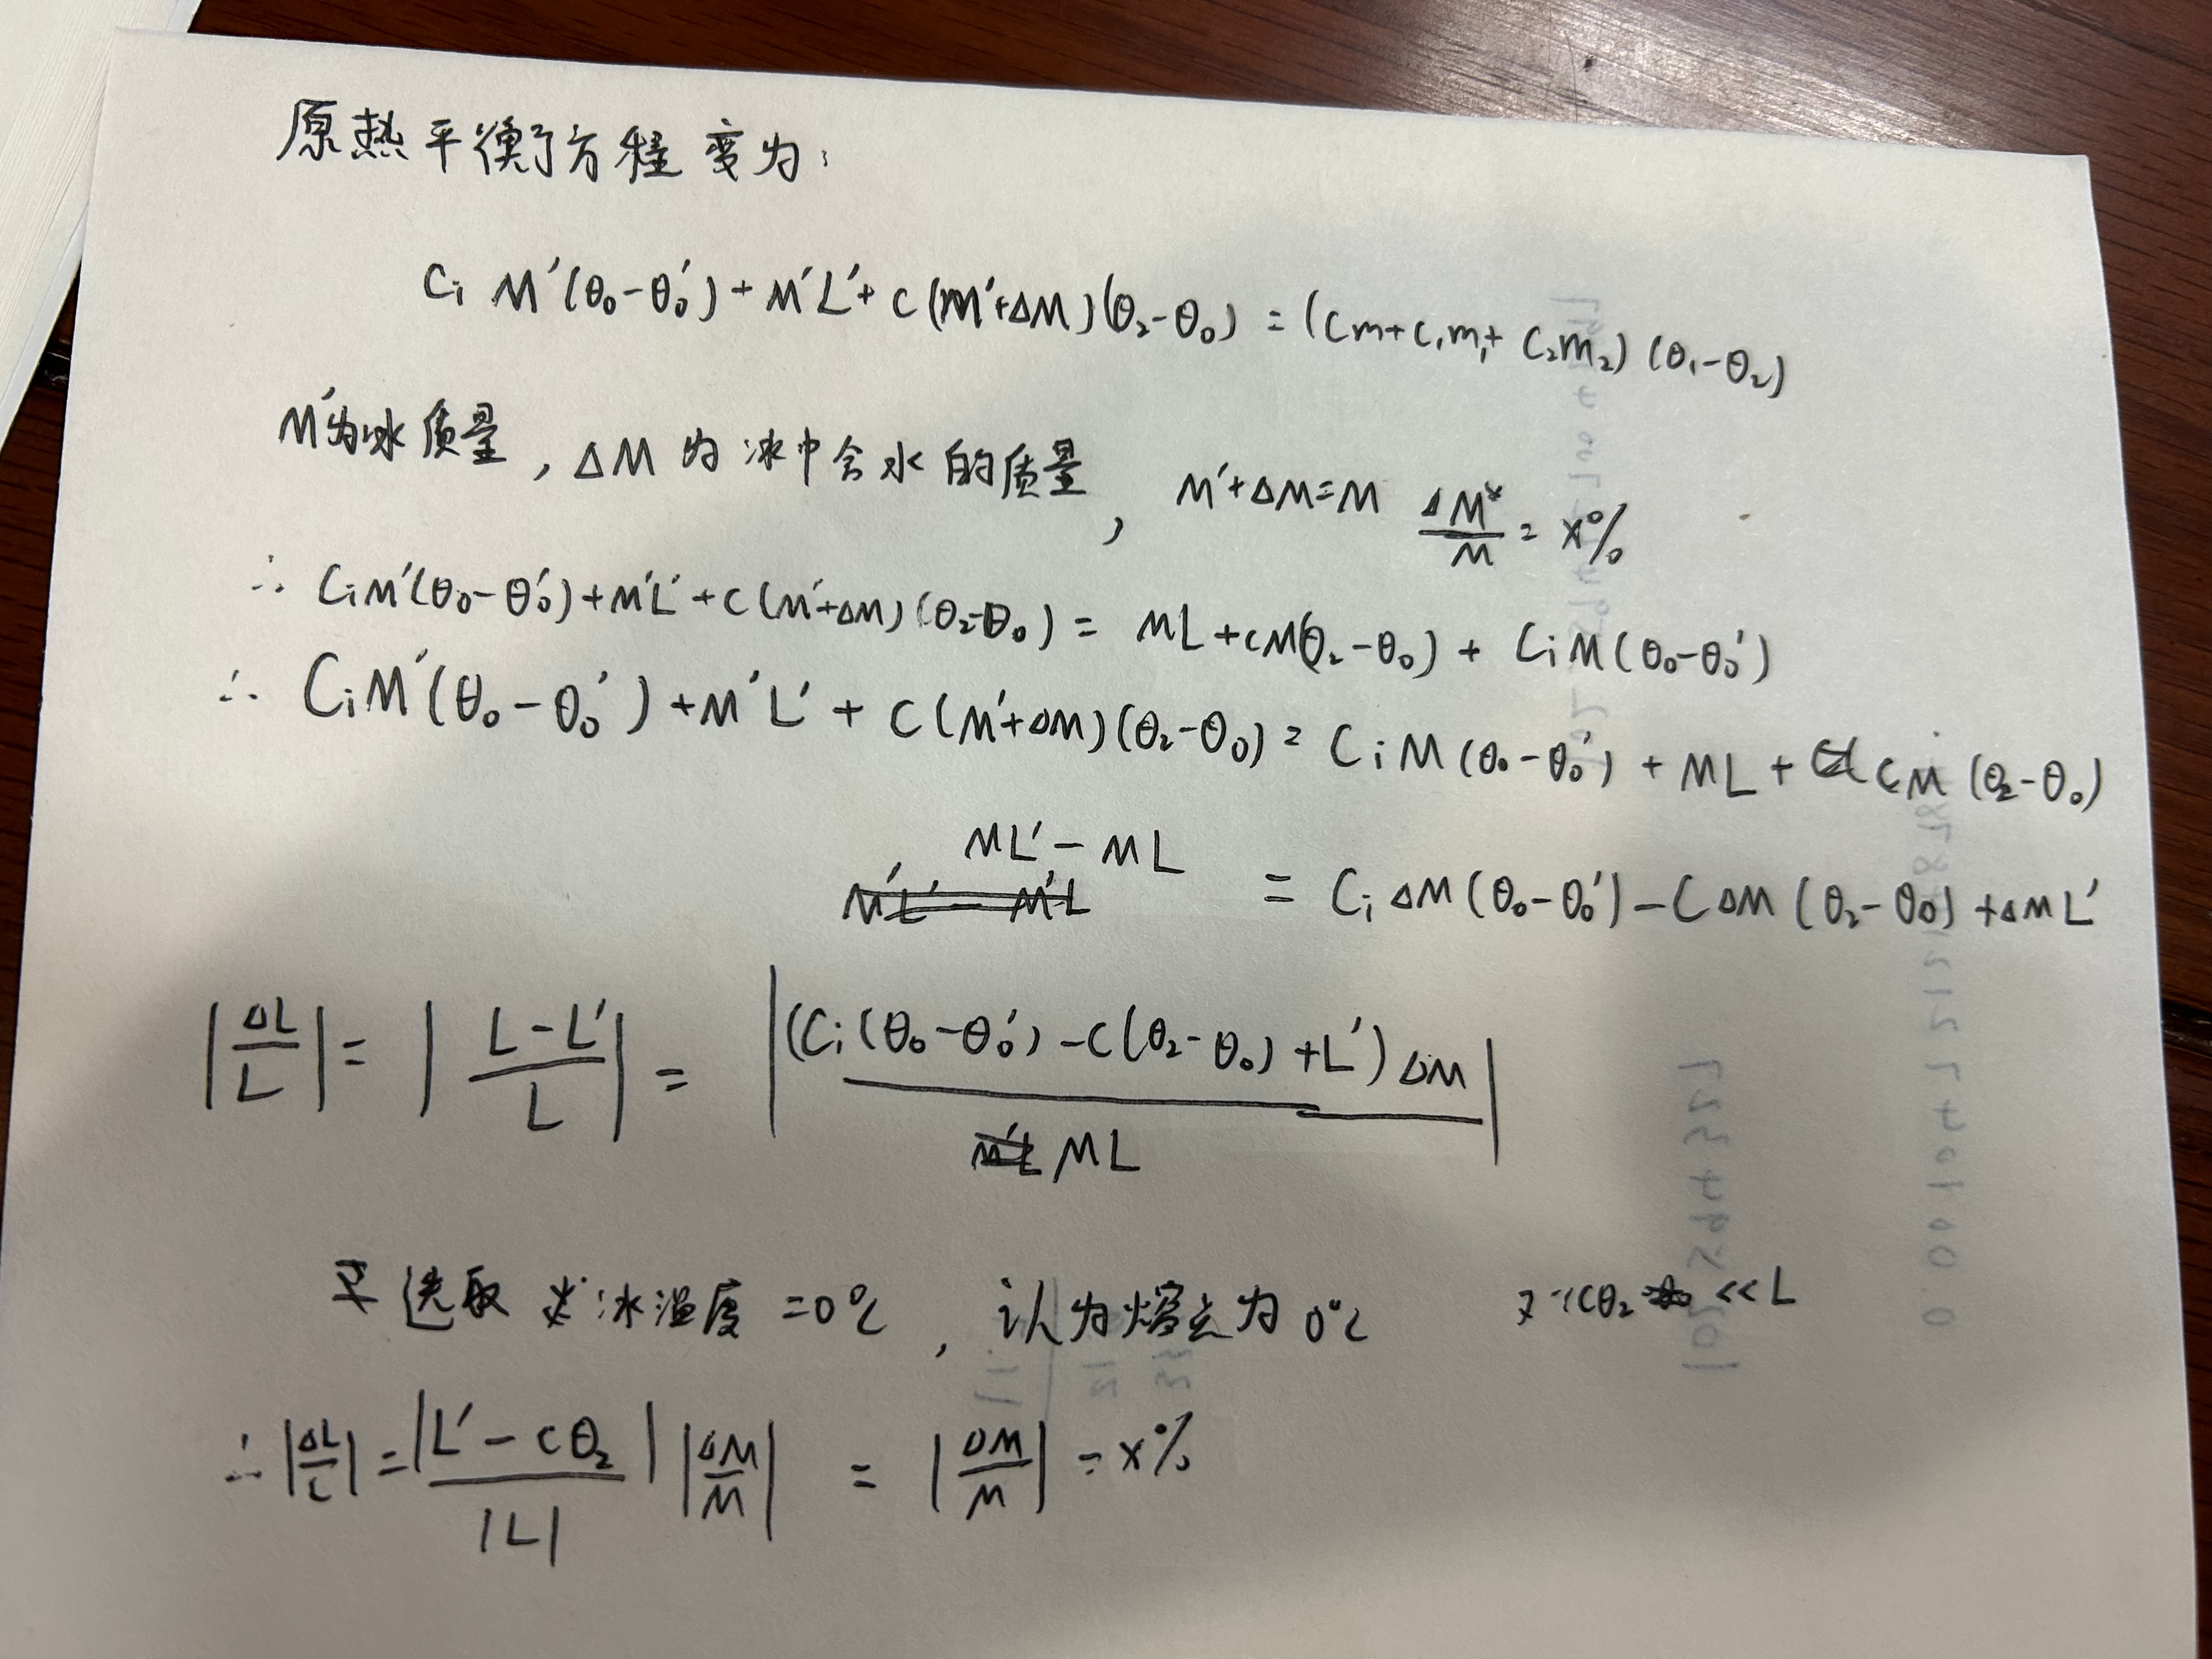 原热平衡方程变为:
CᵢM′(θ₀-θ₀′)+M′L′+c(M′+ΔM)(θ₂-θ₀)=(cm+c₁m₁+c₂m₂)(θ₁-θ₂)
M′为冰质量,ΔM为冰中含水的质量, M′+ΔM=M ΔM/M=x%
∴ CᵢM′(θ₀-θ₀′)+M′L′+c(M′+ΔM)(θ₂-θ₀)=ML+cM(θ₂-θ₀)+CᵢM(θ₀-θ₀′)
∴ CᵢM′(θ₀-θ₀′)+M′L′+c(M′+ΔM)(θ₂-θ₀)=CᵢM(θ₀-θ₀′)+ML+cM(θ₂-θ₀)
ML′-ML
M′L′-M′L = CᵢΔM(θ₀-θ₀′)-CΔM(θ₂-θ₀)+ΔML′
|ΔL/L|=|(L-L′)/L|=|(Cᵢ(θ₀-θ₀′)-c(θ₂-θ₀)+L′)ΔM/ML|
选取冰温度=0℃,认为熔点为0℃ 又∵cθ₂<<L
∴|ΔL/L|=|L′-cθ₂|/|L| |ΔM/M|=|ΔM/M|=x%